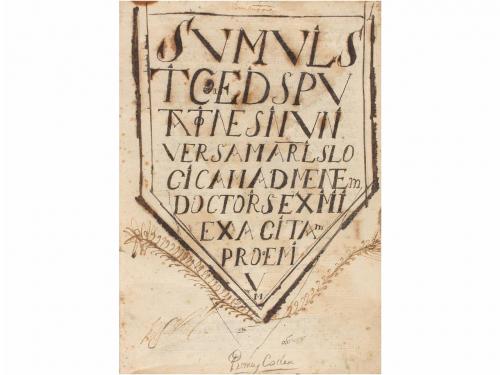 SVMVLS
TCEDSPV
TATNESINVNI
VERSAMARLSLO
GICAMADMENEm
DOCTORSEXIMI
EXACITAm
PROEMI
V
M